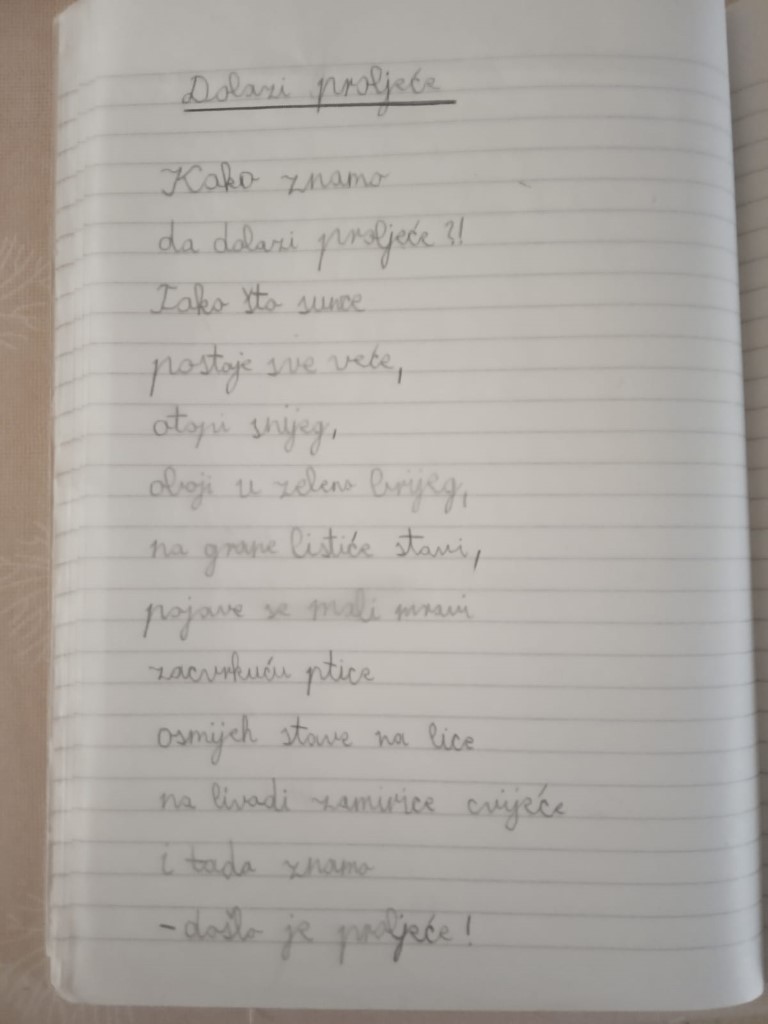 Dolazi proljeće
Kako znamo
da dolazi proljeće?!
Tako što sunce
postaje sve veće,
otopi snijeg,
oboji u zeleno brijeg,
na grane listiće stavi,
pojave se mali mravi
zacvrkuću ptice
osmijeh stave na lice
na livadi zamiriče cvijeće
i tada znamo
-došlo je proljeće!